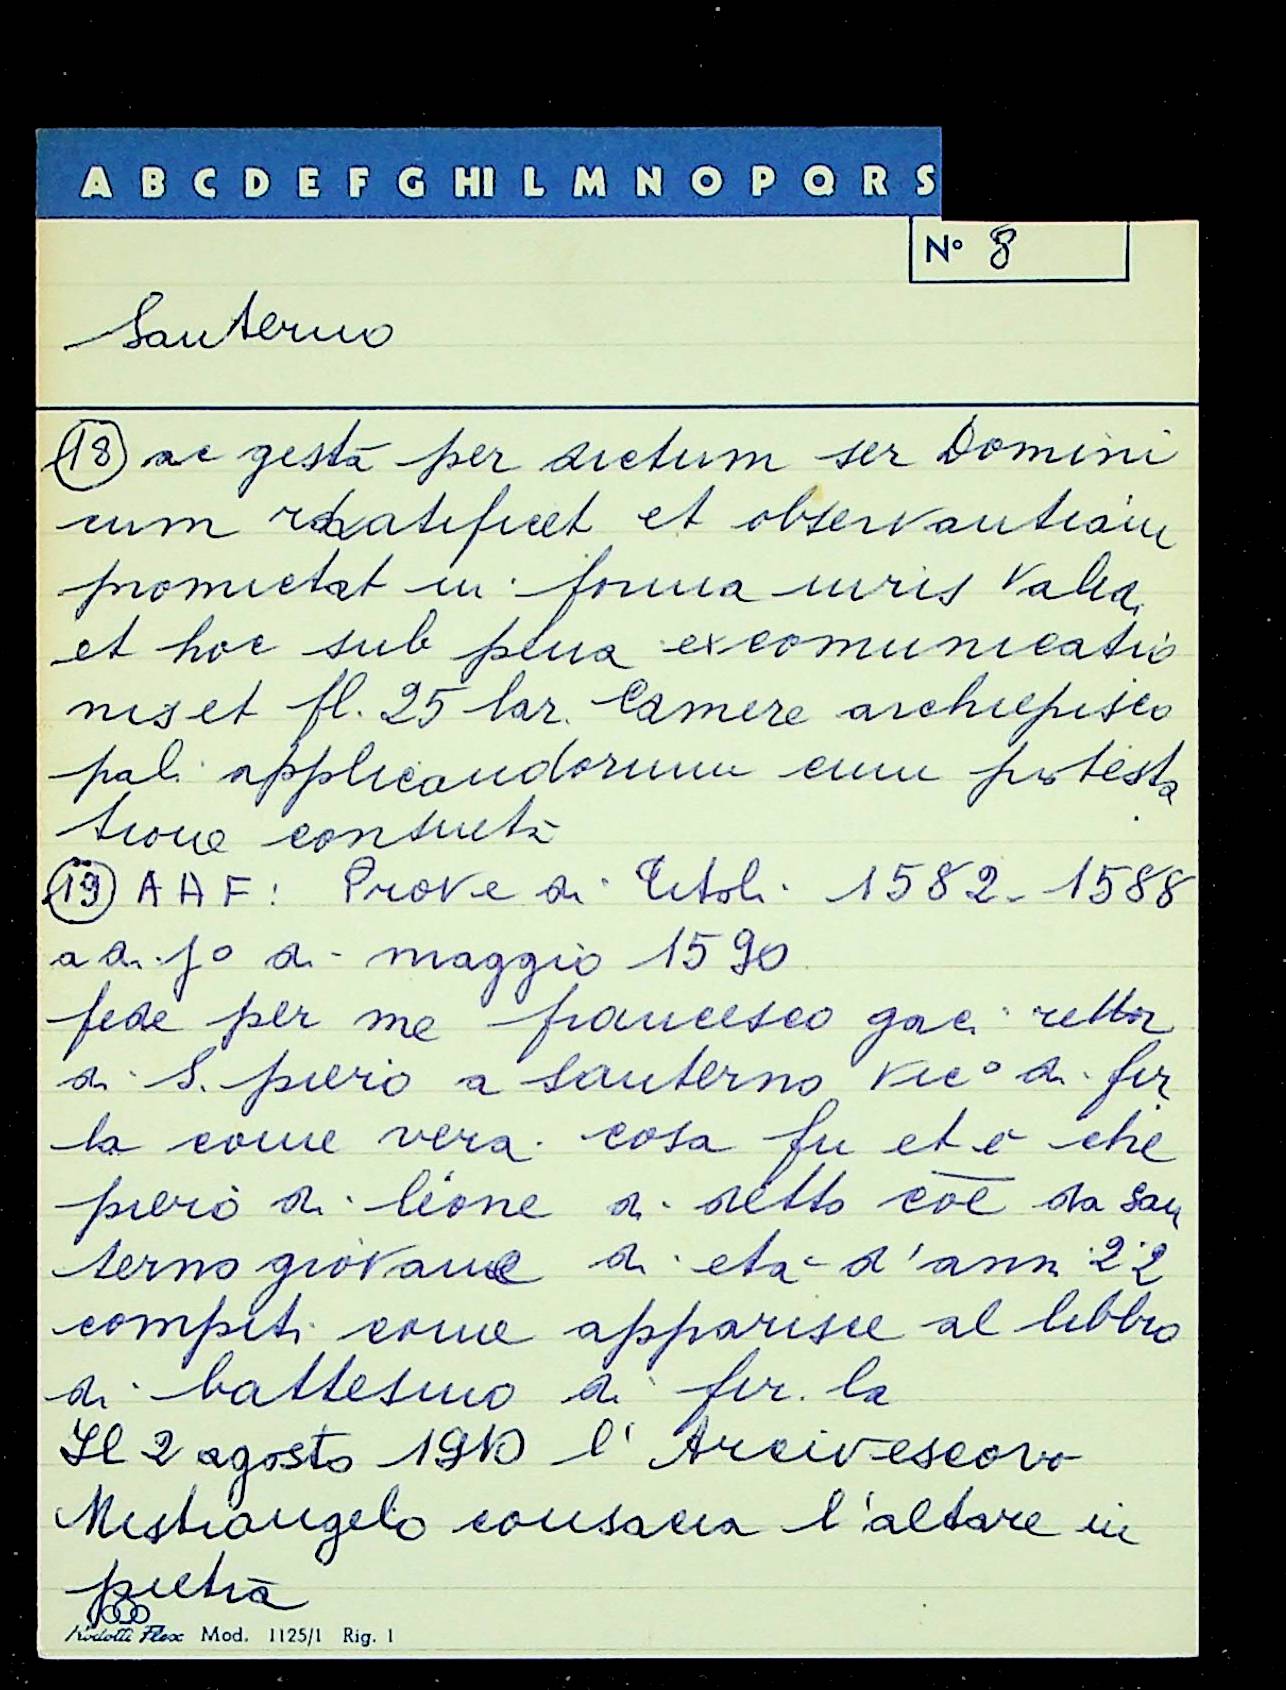 A B C D E F G HI L M N O P Q R S
N° 8
Santerno
(18) ac gesta per dictum ser Domini
cum ratificet et observantiam
promictat in forma iuris valida
et hoc sub pena excomunicatio
nis et fl. 25 lar. Camere archiepisco
pali applicandorum cum protesta
tione consueta
(19) A A F: Prove di Titoli 1582-1588
a di p° di maggio 1590
fede per me francesco gaci rettor
di S. piero a Santerno vic° di fir
la come vera cosa fu et è che
piero di lione di detto coe da San
terno giovane di età d'anni 22
compiti come apparisce al libbro
di battesimo di fir. la
Il 2 agosto 1910 l'Arcivescovo
Mistrangelo consacra l'altare in
pietra
Rodotti Flex Mod. 1125/1 Rig. 1